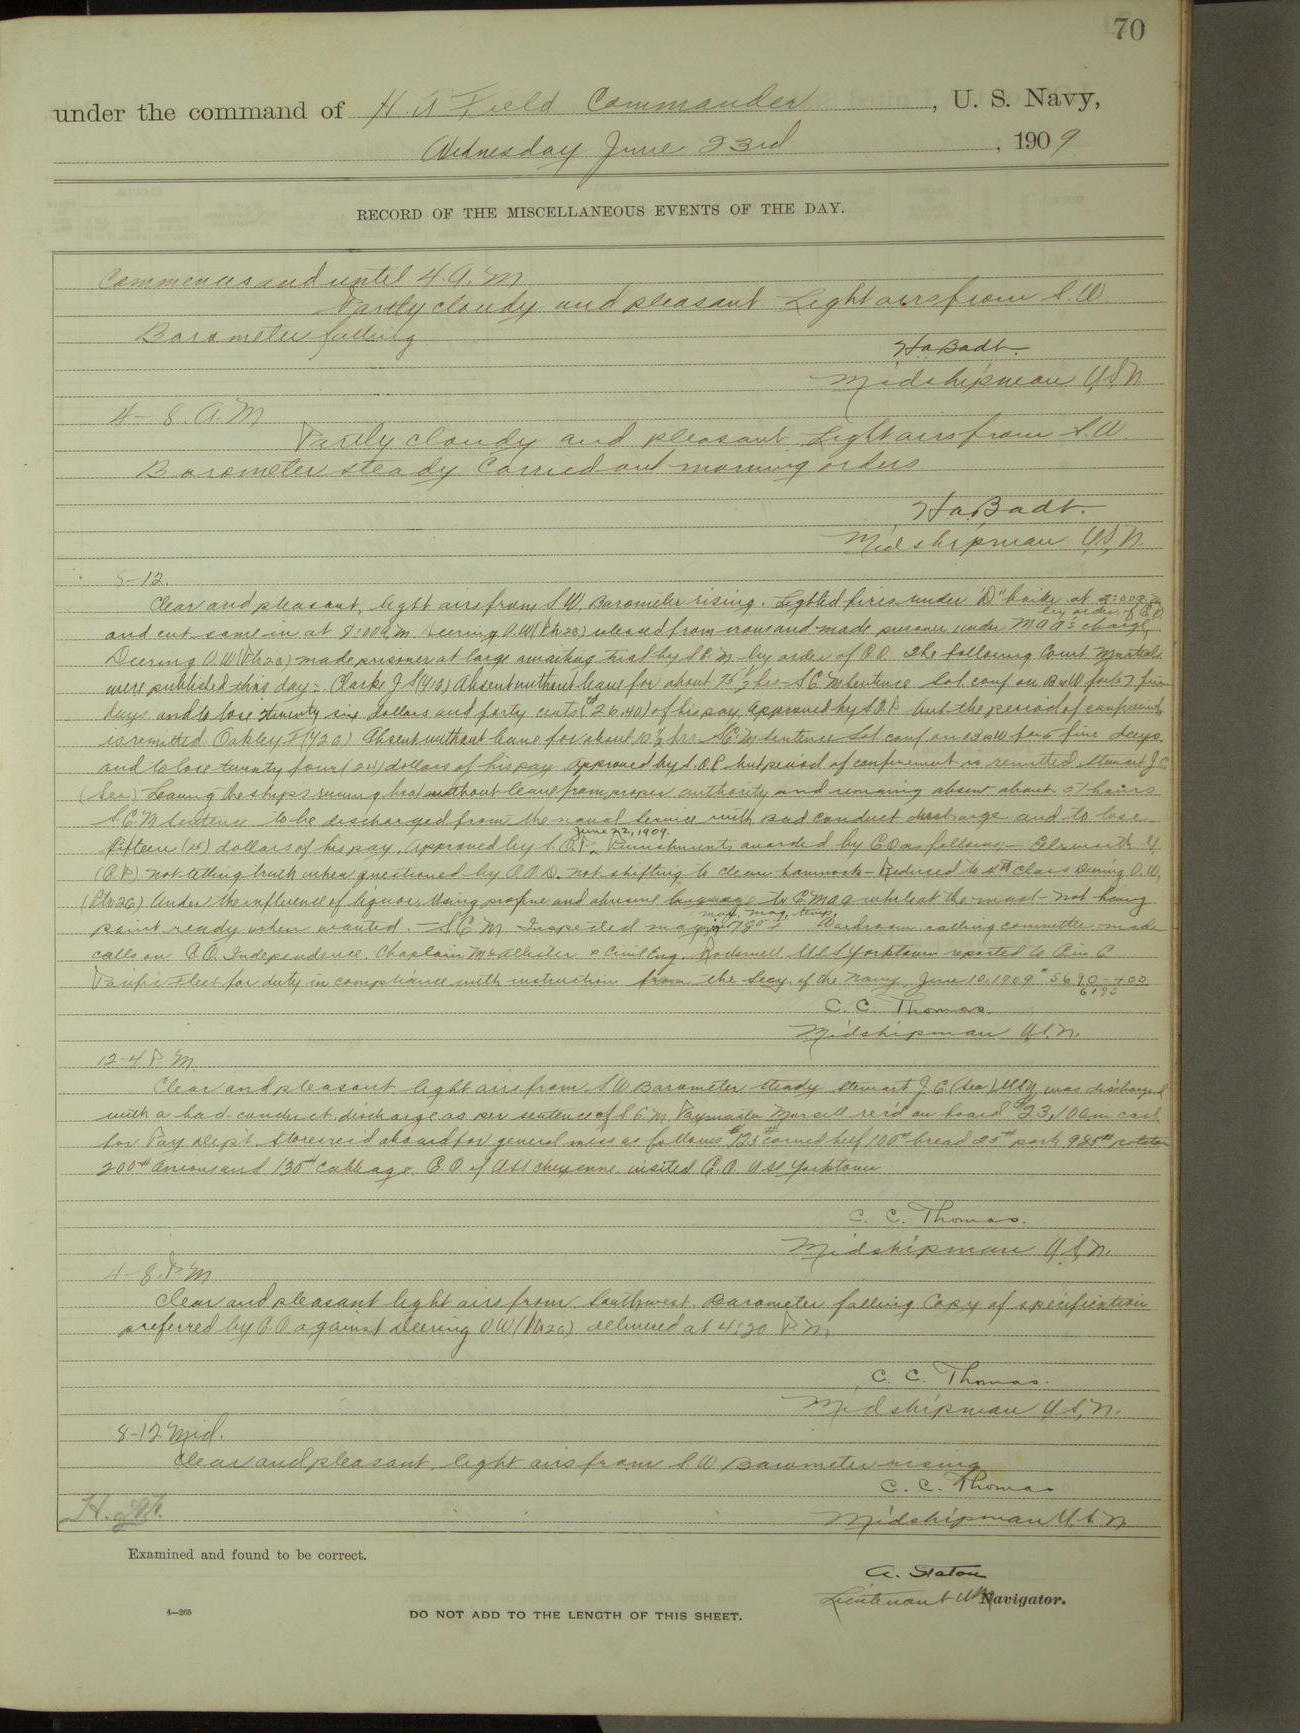 70
under the command of H. A Field Commander, U. S. Navy,
Wednesday June 23rd, 1909
RECORD OF THE MISCELLANEOUS EVENTS OF THE DAY.
Commences and until 4. A. M
Partly cloudy and pleasant. Light airs from S. W.
Barometer falling.
H a Badt.
Midshipman U S N
4 - 8. A. M
Partly cloudy and pleasant. Light airs from S. W.
Barometer steady Carried out morning orders
H a. Badt.
Midshipman U. S. N.
8-12.
Clear and pleasant, light airs from S W. Barometer rising. Lighted fires under "D" boiler at
by order of C. O.
and cut same in at a. m. Deering O. W (Ptr 2c) released from irons and made prisoner under M a a's charge
Deering O. W (Ptr 2c) made prisoner at large awaiting trial by S. C. M by order of C O. The following Court Martials
were published this day:- Clarke J S (4 10) Absent without leave for about 25 ½ hrs S C M Sentence Sol. conf. on B & W for five
days and to lose twenty six dollars and forty cents ($26.40) of his pay. Approved by S. O. P. but the period of confinement
is remitted Oakley F Absent without leave for about 10 ½ hrs S C M Sentence Sol conf on B & W for five days
and to lose twenty four (24) dollars of his pay. Approved by S. O P. but period of confinement is remitted. Stewart J C
(Sea) Leaving the ships running boat without leave from proper authority and remaining absent about hours
S. C. M Sentence to be discharged from the naval service with bad conduct discharge and to lose
June 22, 1909.
fifteen (15) dollars of his pay. Approved by S. O. P. Punishments awarded by C O as follows;-
(O. P) not telling truth when questioned by O. O. D. not shifting to clean hammock - Reduced to 4th class Deering O. W.
(Ptr 2c) Under the influence of liquor. Using profane and abusive language to C M a a while at the mast - not having
max. mag. temp.
paint ready when wanted. - S C M Inspected mag 78° F Wardroom calling committee made
calls on C. O. Independence. Chaplain McAllister & Civil Eng. Rockwell U. S. S Yorktown reported to C in C
Pacific Fleet for duty in compliance with instruction from the Secy. of the Navy June 10. 1909 # 5690 - 400
C. C Thomas.
Midshipman U. S. N.
12-4 P M
Clear and pleasant light airs from S W Barometer steady. Stewart J. C (Sea) USN was discharged
with a bad conduct discharge as per sentence of S C M. Paymaster Morsell rec'd on board cash
for Pay Dep't. Stores rec'd aboard for general mess as follows 125# corned beef 100# bread 25# pork 985# potatoes
200# onions and 130# cabbage. C. O. of USS Cheyenne visited C. O. U SS Yorktown
C. C. Thomas.
Midshipman U. S. N.
4 - 8. P M
Clear and pleasant light airs from Southwest. Barometer falling Copy of specification
preferred by C. O against Deering O W (Ptr 2c) delivered at 4:20 P. M.
C. C. Thomas.
Midshipman U. S. N.
8-12 Mid.
Clear and pleasant. light airs from S W Barometer rising
C. C. Thomas
Midshipman U. S. N
Examined and found to be correct.
A. Staton
Lieutenant USN Navigator.
4—265
DO NOT ADD TO THE LENGTH OF THIS SHEET.